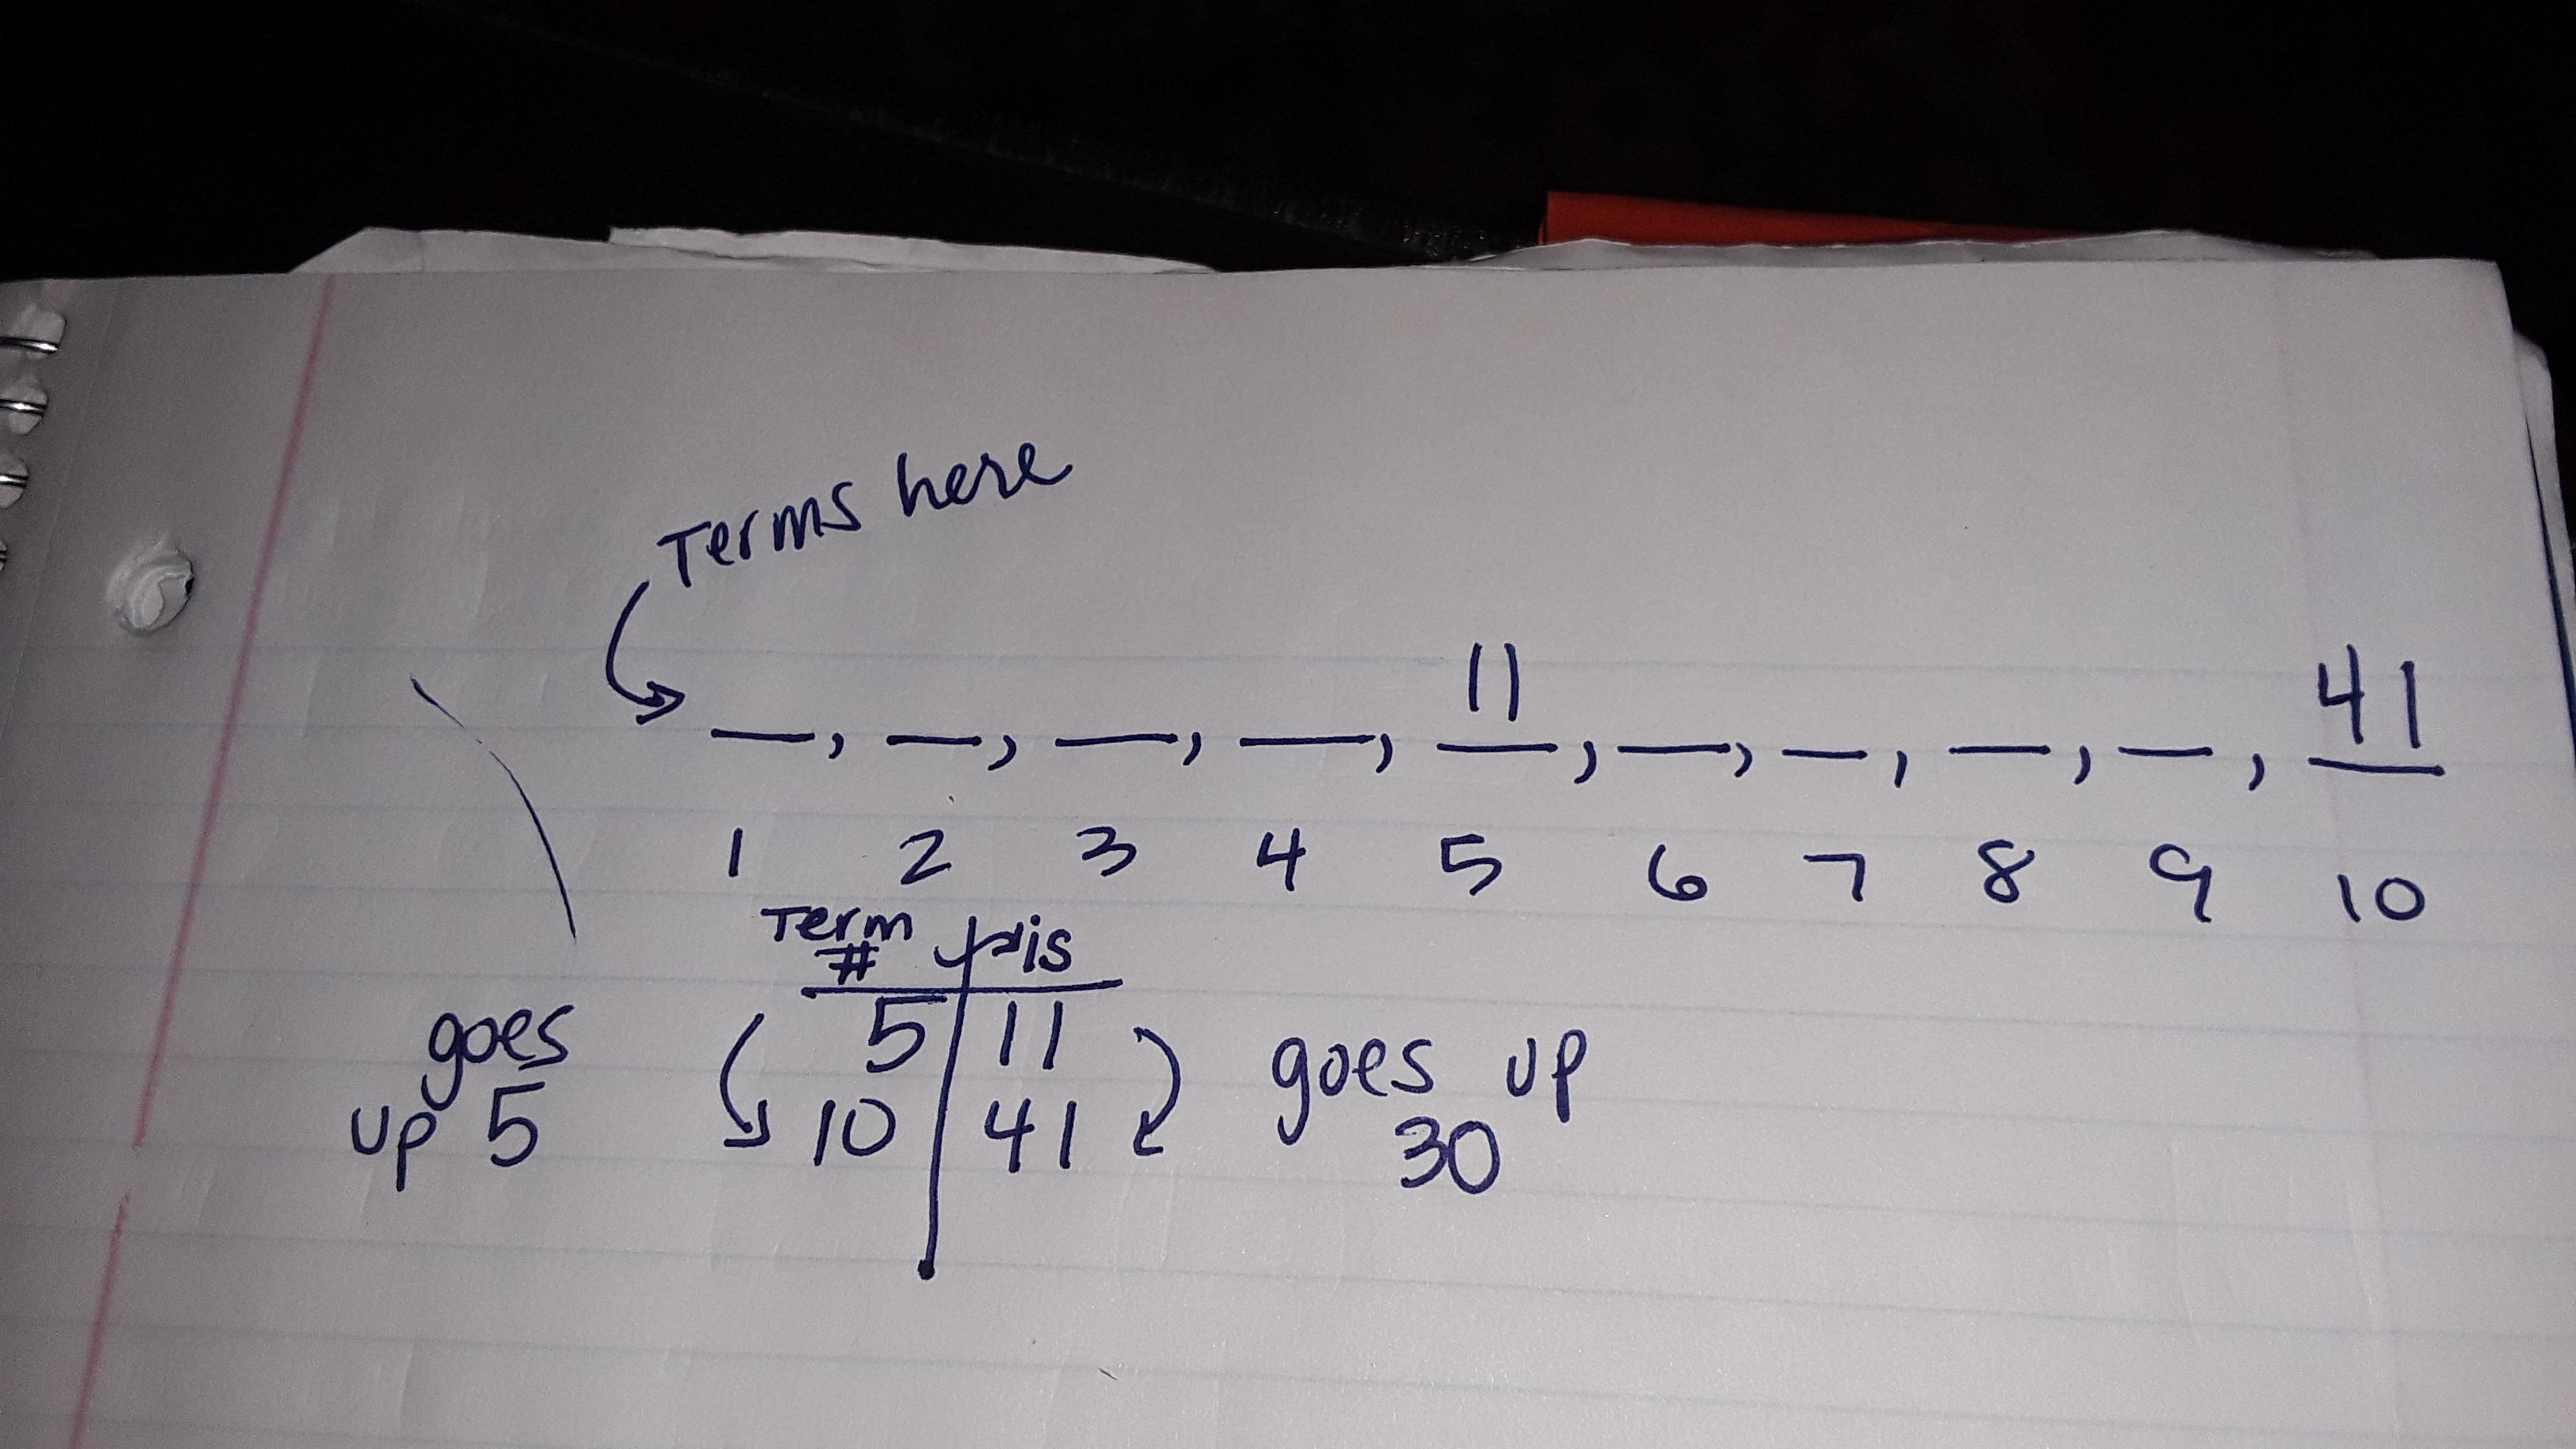 Terms here
__, __, __, __, 11, __, __, __, __, 41
1 2 3 4 5 6 7 8 9 10
Term # is
goes up 5
5 11
10 41
goes up 30